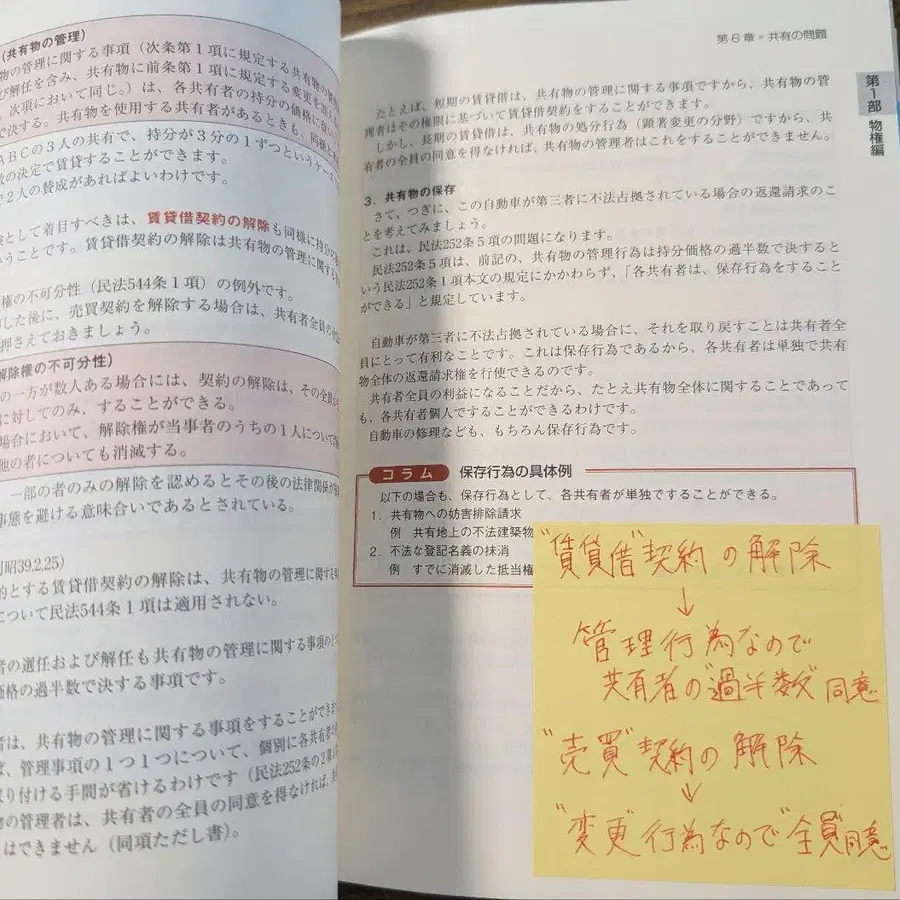 (共有物の管理)
物の管理に関する事項（次条第１項に規定する共有物の
び解任を含み、共有物に前条第１項に規定する変更を
次項において同じ。）は、各共有者の持分の価格に
で決する。共有物を使用する共有者があるときも、同様
ＡＢＣの３人の共有で、持分が３分の１ずつという
の決定で賃貸することができます。
で２人の賛成があればよいわけです。
として着目すべきは、賃貸借契約の解除も同様に持分
うことです。賃貸借契約の解除は共有物の管理に関する
権の不可分性（民法544条１項）の例外です。
した後に、売買契約を解除する場合は、共有者全員の
押さえておきましょう。
解除権の不可分性)
の一方が数人ある場合には、契約の解除は、その全員
に対してのみ、することができる。
場合において、解除権が当事者のうちの１人について
他の者についても消滅する。
一部の者のみの解除を認めるとその後の法律関係が
事態を避ける意味合いであるとされている。
昭39.2.25)
的とする賃貸借契約の解除は、共有物の管理に関する
について民法544条１項は適用されない。
者の選任および解任も共有物の管理に関する事項の
価格の過半数で決する事項です。
者は、共有物の管理に関する事項をすることができ
ば、管理事項の１つ１つについて、個別に各共有者の
取り付ける手間が省けるわけです（民法252条の２第
物の管理者は、共有者の全員の同意を得なければ、
はできません（同項ただし書）。
第６章 共有の問題
第1部 物権編
たとえば、短期の賃貸借は、共有物の管理に関する事項ですから、共有物の管
理者はその権限に基づいて賃貸借契約をすることができます。
しかし、長期の賃貸借は、共有物の処分行為（顕著変更の分野）ですから、共
有者の全員の同意を得なければ、共有物の管理者はこれをすることができません。
３．共有物の保存
さて、つぎに、この自動車が第三者に不法占拠されている場合の返還請求のこ
とを考えてみましょう。
これは、民法252条５項の問題になります。
民法252条５項は、前記の、共有物の管理行為は持分価格の過半数で決すると
いう民法252条１項本文の規定にかかわらず、「各共有者は、保存行為をすること
ができる」と規定しています。
自動車が第三者に不法占拠されている場合に、それを取り戻すことは共有者全
員にとって有利なことです。これは保存行為であるから、各共有者は単独で共有
物全体の返還請求権を行使できるのです。
共有者全員の利益になることだから、たとえ共有物全体に関することであって
も、各共有者個人ですることができるわけです。
自動車の修理なども、もちろん保存行為です。
コラム 保存行為の具体例
以下の場合も、保存行為として、各共有者が単独ですることができる。
１．共有物への妨害排除請求
例 共有地上の不法建築物
２．不法な登記名義の抹消
例 すでに消滅した抵当権
"賃貸借"契約の解除
↓
管理行為なので
共有者の"過半数"同意
"売買"契約の解除
↓
"変更"行為なので"全員"同意